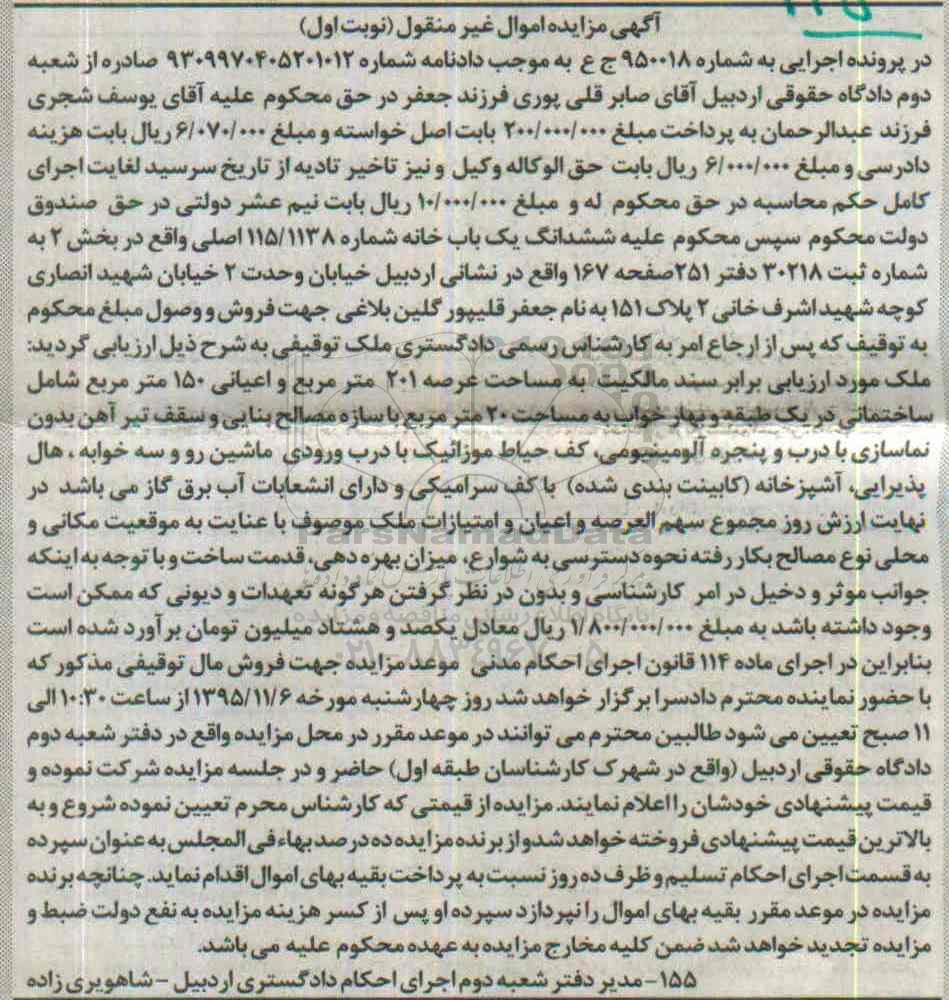 آگهی مزایده اموال غیر منقول (نوبت اول)
در پرونده اجرایی به شماره ۹۵۰۰۱۸ ج ع به موجب دادنامه شماره ۹۳۰۹۹۷۰۴۰۵۲۰۱۰۱۲ صادره از شعبه
دوم دادگاه حقوقی اردبیل آقای صابر قلی پوری فرزند جعفر در حق محکوم علیه آقای یوسف شجری
فرزند عبدالرحمان به پرداخت مبلغ ۲۰۰/۰۰۰/۰۰۰ بابت اصل خواسته و مبلغ ۶/۰۷۰/۰۰۰ ریال بابت هزینه
دادرسی و مبلغ ۶/۰۰۰/۰۰۰ ریال بابت حق الوکاله وکیل و نیز تاخیر تادیه از تاریخ سررسید لغایت اجرای
کامل حکم محاسبه در حق محکوم له و مبلغ ۱۰/۰۰۰/۰۰۰ ریال بابت نیم عشر دولتی در حق صندوق
دولت محکوم سپس محکوم علیه ششدانگ یک باب خانه شماره ۱۱۵/۱۱۳۸ اصلی واقع در بخش ۲ به
شماره ثبت ۳۰۲۱۸ دفتر ۲۵۱صفحه ۱۶۷ واقع در نشانی اردبیل خیابان وحدت ۲ خیابان شهید انصاری
کوچه شهید اشرف خانی ۲ پلاک ۱۵۱ به نام جعفر قلیپور گلین بلاغی جهت فروش و وصول مبلغ محکوم
به توقیف که پس از ارجاع امر به کارشناس رسمی دادگستری ملک توقیفی به شرح ذیل ارزیابی گردید:
ملک مورد ارزیابی برابر سند مالکیت به مساحت عرصه ۲۰۱ متر مربع و اعیانی ۱۵۰ متر مربع شامل
ساختمانی در یک طبقه و بهار خواب به مساحت ۲۰ متر مربع با سازه مصالح بنایی و سقف تیر آهن بدون
نماسازی با درب و پنجره آلومینیومی، کف حیاط موزائیک با درب ورودی ماشین رو و سه خوابه ، هال
پذیرایی، آشپزخانه (کابینت بندی شده) با کف سرامیکی و دارای انشعابات آب برق گاز می باشد در
نهایت ارزش روز مجموع سهم العرصه و اعیان و امتیازات ملک موصوف با عنایت به موقعیت مکانی و
محلی نوع مصالح بکار رفته نحوه دسترسی به شوارع، میزان بهره دهی، قدمت ساخت و با توجه به اینکه
جوانب موثر و دخیل در امر کارشناسی و بدون در نظر گرفتن هرگونه تعهدات و دیونی که ممکن است
وجود داشته باشد به مبلغ ۱/۸۰۰/۰۰۰/۰۰۰ ریال معادل یکصد و هشتاد میلیون تومان برآورد شده است
بنابراین در اجرای ماده ۱۱۴ قانون اجرای احکام مدنی موعد مزایده جهت فروش مال توقیفی مذکور که
با حضور نماینده محترم دادسرا برگزار خواهد شد روز چهارشنبه مورخه ۱۳۹۵/۱۱/۶ از ساعت ۱۰:۳۰ الی
۱۱ صبح تعیین می شود طالبین محترم می توانند در موعد مقرر در محل مزایده واقع در دفتر شعبه دوم
دادگاه حقوقی اردبیل (واقع در شهرک کارشناسان طبقه اول) حاضر و در جلسه مزایده شرکت نموده و
قیمت پیشنهادی خودشان را اعلام نمایند. مزایده از قیمتی که کارشناس محرم تعیین نموده شروع و به
بالاترین قیمت پیشنهادی فروخته خواهد شد و از برنده مزایده ده درصد بهاء فی المجلس به عنوان سپرده
به قسمت اجرای احکام تسلیم و ظرف ده روز نسبت به پرداخت بقیه بهای اموال اقدام نماید. چنانچه برنده
مزایده در موعد مقرر بقیه بهای اموال را نپردازد سپرده او پس از کسر هزینه مزایده به نفع دولت ضبط و
مزایده تجدید خواهد شد ضمن کلیه مخارج مزایده به عهده محکوم علیه می باشد.
۱۵۵- مدیر دفتر شعبه دوم اجرای احکام دادگستری اردبیل - شاهویری زاده
ParsNamadData
۰۲۱-۸۸۳۴۹۶۷۰-۵